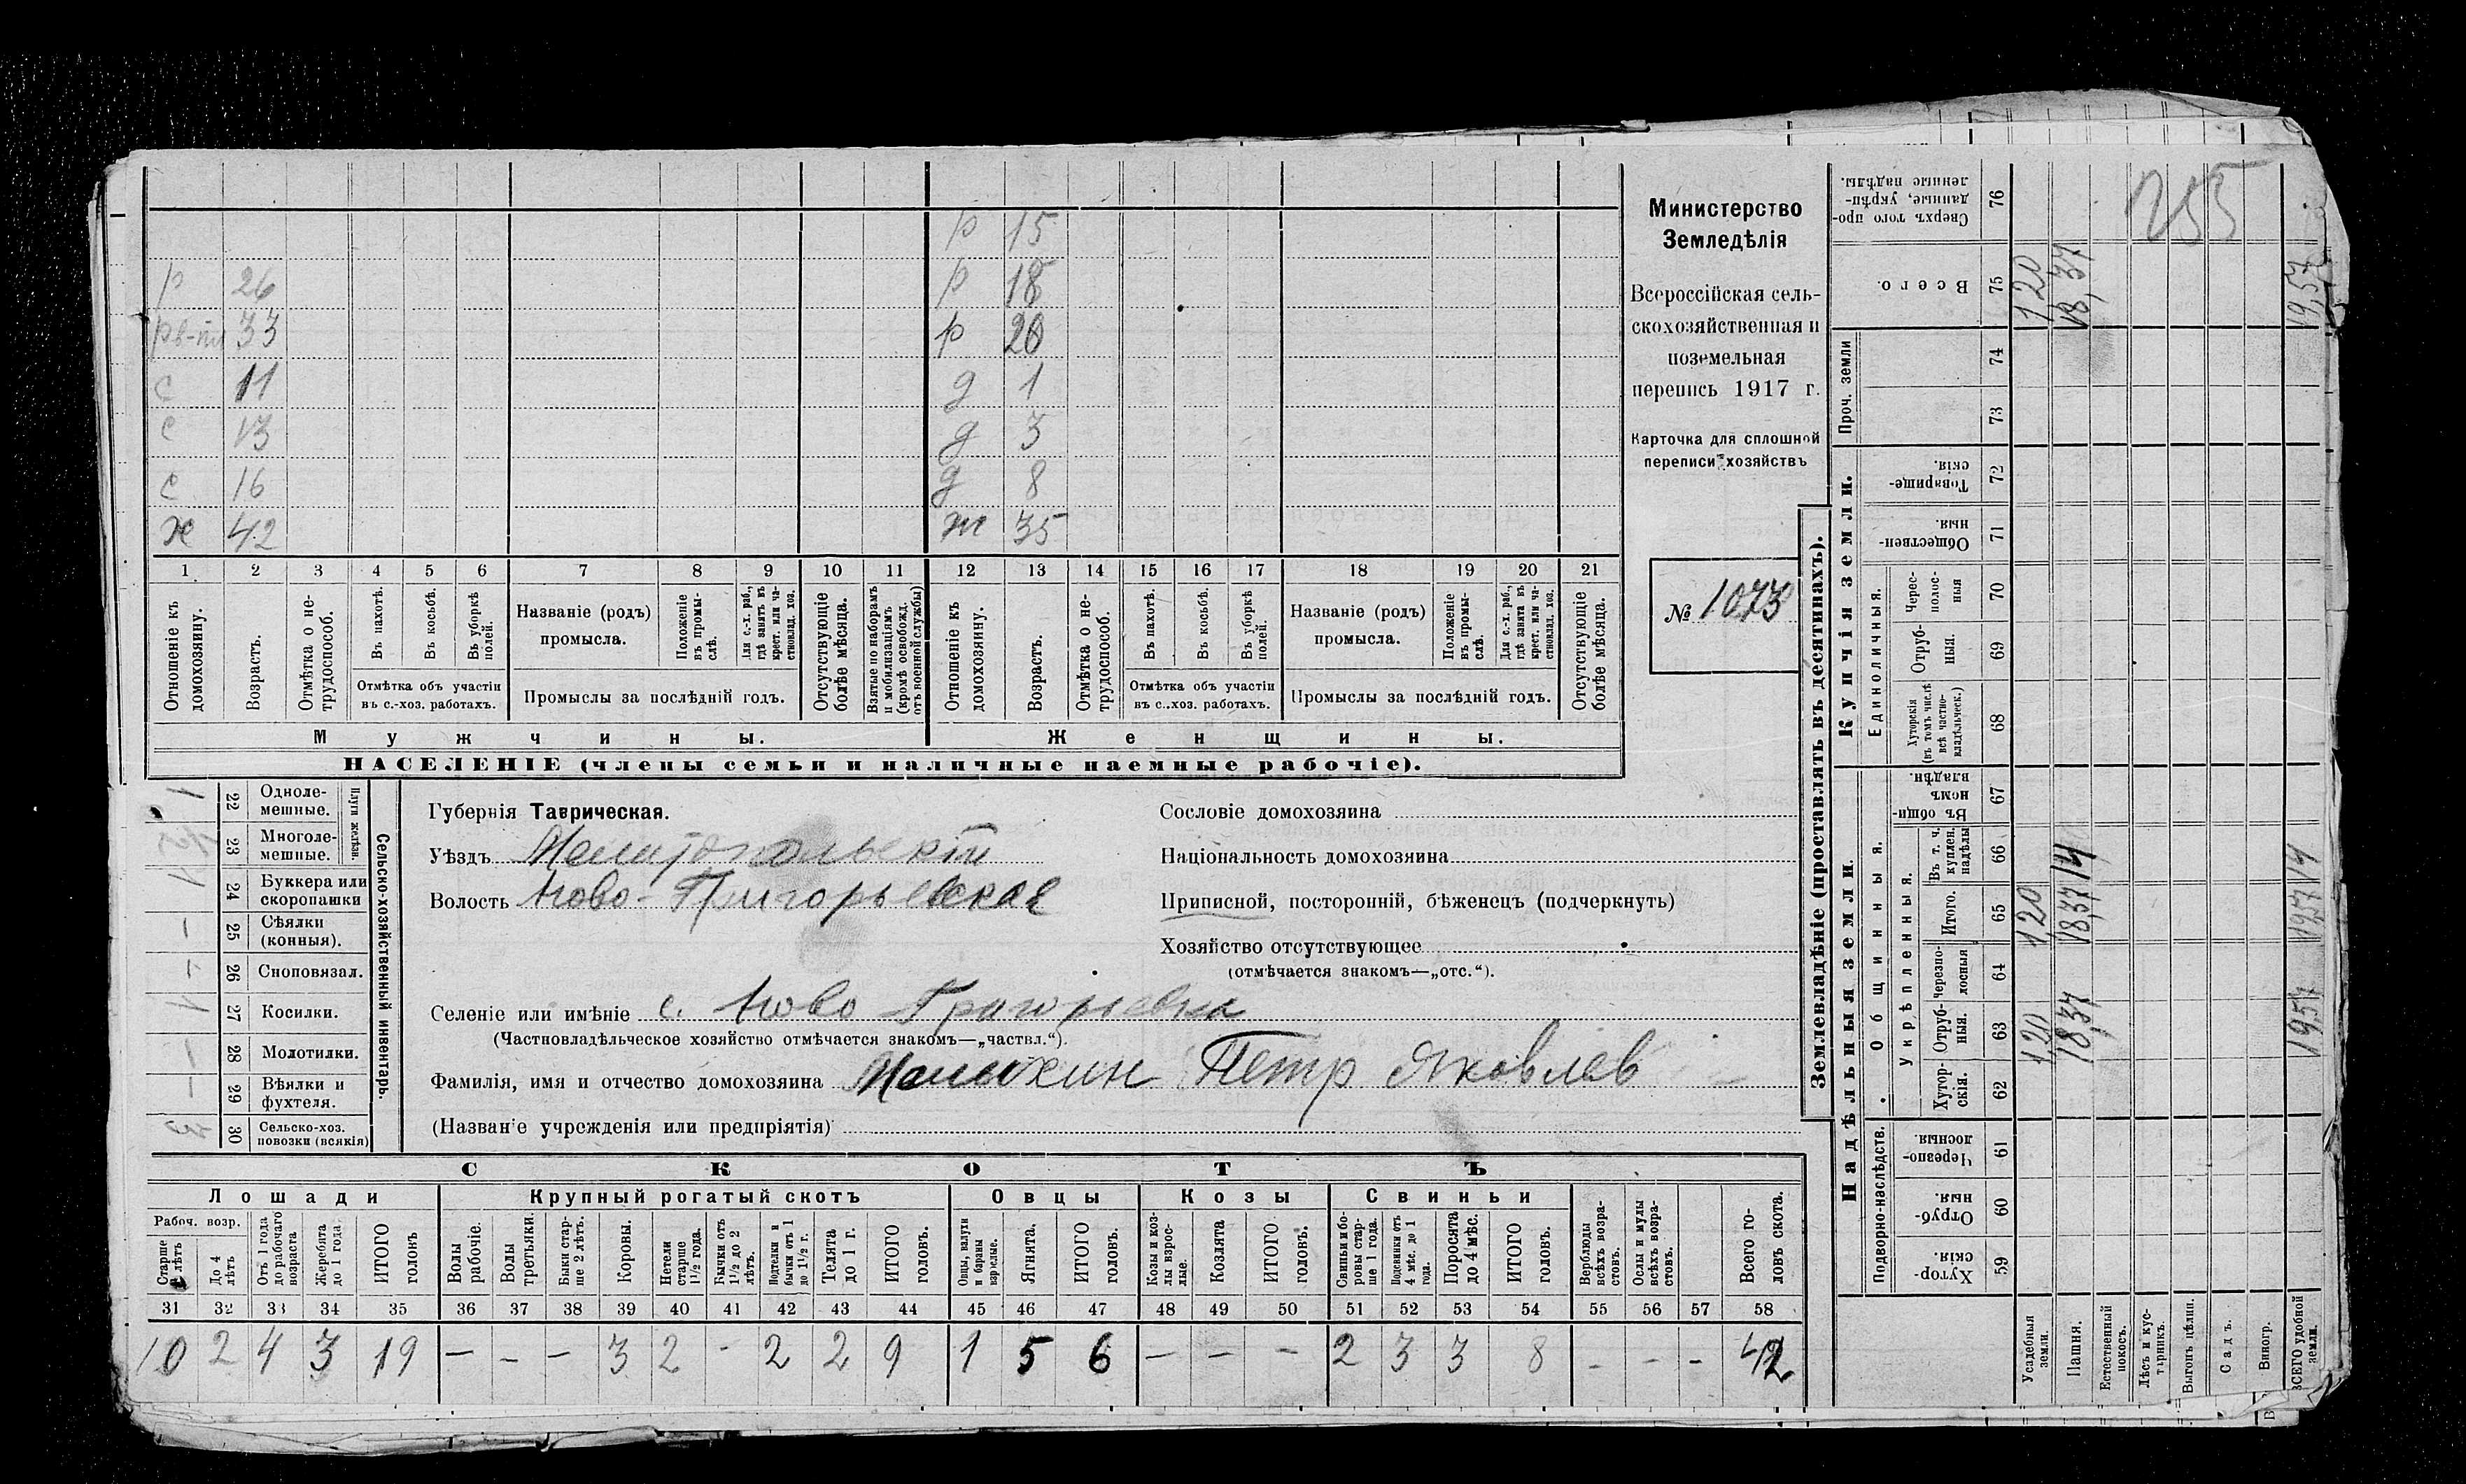 р 15
р 26 р 18
рв-пл 33 р 20
с 11 д 1
с 13 д 3
с 16 д 8
х 42 ж 35
1 2 3 4 5 6 7 8 9 10 11 12 13 14 15 16 17 18 19 20 21
Отношеніе къ домохозяину.
Возрастъ.
Отмѣтка о не-трудоспособ.
Въ пахотѣ.
Въ косьбѣ.
Въ уборкѣ полей.
Отмѣтка объ участіи въ с.-хоз. работахъ.
Названіе (родъ) промысла.
Положеніе въ промы-слѣ.
Для с.-х. раб., гдѣ занятъ въ крест. или ча-стновлад. хоз.
Промыслы за послѣдній годъ.
Отсутствующіе болѣе мѣсяца.
Взятые по наборамъ и мобилизаціямъ (кромѣ освобожд. отъ военной службы)
Отношеніе къ домохозяину.
Возрастъ.
Отмѣтка о не-трудоспособ.
Въ пахотѣ.
Въ косьбѣ.
Въ уборкѣ полей.
Отмѣтка объ участіи въ с.-хоз. работахъ.
Названіе (родъ) промысла.
Положеніе въ промы-слѣ.
Для с.-х. раб., гдѣ занята въ крест. или ча-стновлад. хоз.
Промыслы за послѣдній годъ.
Отсутствующіе болѣе мѣсяца.
Мужчины. Женщины.
НАСЕЛЕНІЕ (члены семьи и наличные наемные рабочіе).
Министерство
Земледѣлія
Всероссійская сель-
скохозяйственная и
поземельная
перепись 1917 г.
Карточка для сплошной
переписи хозяйствъ
№ 1073
Сельско-хозяйственный инвентарь.
Плуги желѣзн.
Одноле-мешные. 22 1
Многоле-мешные. 23
Буккера или скоропашки 24 1
Сѣялки (конныя). 25 –
Сноповязал. 26 –
Косилки. 27 1
Молотилки. 28 –
Вѣялки и фухтеля. 29 –
Сельско-хоз. повозки (всякія) 30 3
Губернія Таврическая.
Уѣздъ Мелитопольскій
Волость Ново-Григорьевская
Селеніе или имѣніе с. Ново Григорьевка
(Частновладѣльческое хозяйство отмѣчается знакомъ—„частвл.“).
Фамилія, имя и отчество домохозяина Петр Яковлев
(Названіе учрежденія или предпріятія)
Сословіе домохозяина
Національность домохозяина
Приписной, посторонній, бѣженецъ (подчеркнуть)
Хозяйство отсутствующее
(отмѣчается знакомъ—„отс.“).
СКОТЪ
Лошади Крупный рогатый скотъ Овцы Козы Свиньи
Рабоч. возр.
Старше лѣтъ
До 4 лѣтъ
Отъ 1 года до рабочаго возраста
Жеребята до 1 года.
ИТОГО головъ
Волы рабочіе.
Волы третьяки.
Быки стар-ше 2 лѣтъ.
Коровы.
Нетели старше 1½ года.
Бычки отъ 1½ до 2 лѣтъ.
Подтелки и бычки отъ 1 до 1½ г.
Телята до 1 г.
ИТОГО головъ.
Овцы, валухи и бараны взрослые.
Ягнята.
ИТОГО головъ.
Козы и коз-лы взрос-лые.
Козлята
ИТОГО головъ.
Свиньи и бо-ровы стар-ше 1 года.
Подсвинки отъ 4 мѣс. до 1 года.
Поросята до 4 мѣс.
ИТОГО головъ.
Верблюды всѣхъ возра-стовъ.
Ослы и мулы всѣхъ возра-стовъ.
Всего го-ловъ скота.
31 32 33 34 35 36 37 38 39 40 41 42 43 44 45 46 47 48 49 50 51 52 53 54 55 56 57 58
10 2 4 3 19 – – – 3 2 – 2 2 9 1 5 6 – – – 2 3 3 8 – – – 42
Землевладѣніе (проставлять въ десятинахъ).
Надѣльныя земли. Купчія земли. Проч. земли
Подворно-наслѣдств. Общинныя. Единоличныя.
Укрѣпленныя.
Хутор-скія. 59
Отруб-ныя. 60
Черезпо-лосныя 61
Хутор-скія. 62
Отруб-ныя. 63
Черезпо-лосныя 64
Итого. 65
Въ т. ч. куплен. надѣлы 66
Въ общи-номъ владѣн. 67
Хуторскія (въ томъ числѣ всѣ частно-владѣльческ.) 68
Отруб-ныя. 69
Черес-полос-ныя 70
Обществен-ныя. 71
Товарище-скія. 72
73
74
Всего. 75
Сверхъ того про-данные, укрѣп-ленные надѣлы. 76
Усадебныя земли. 1,20 1,20 1,20
Пашня. 18,37 18,37 14 18,37
Естественный покосъ.
Лѣсъ и кус-тарникъ.
Выгонъ цѣлин.
Садъ.
Виногр.
ВСЕГО удобной земли. 19,57 19,57 14 19,57